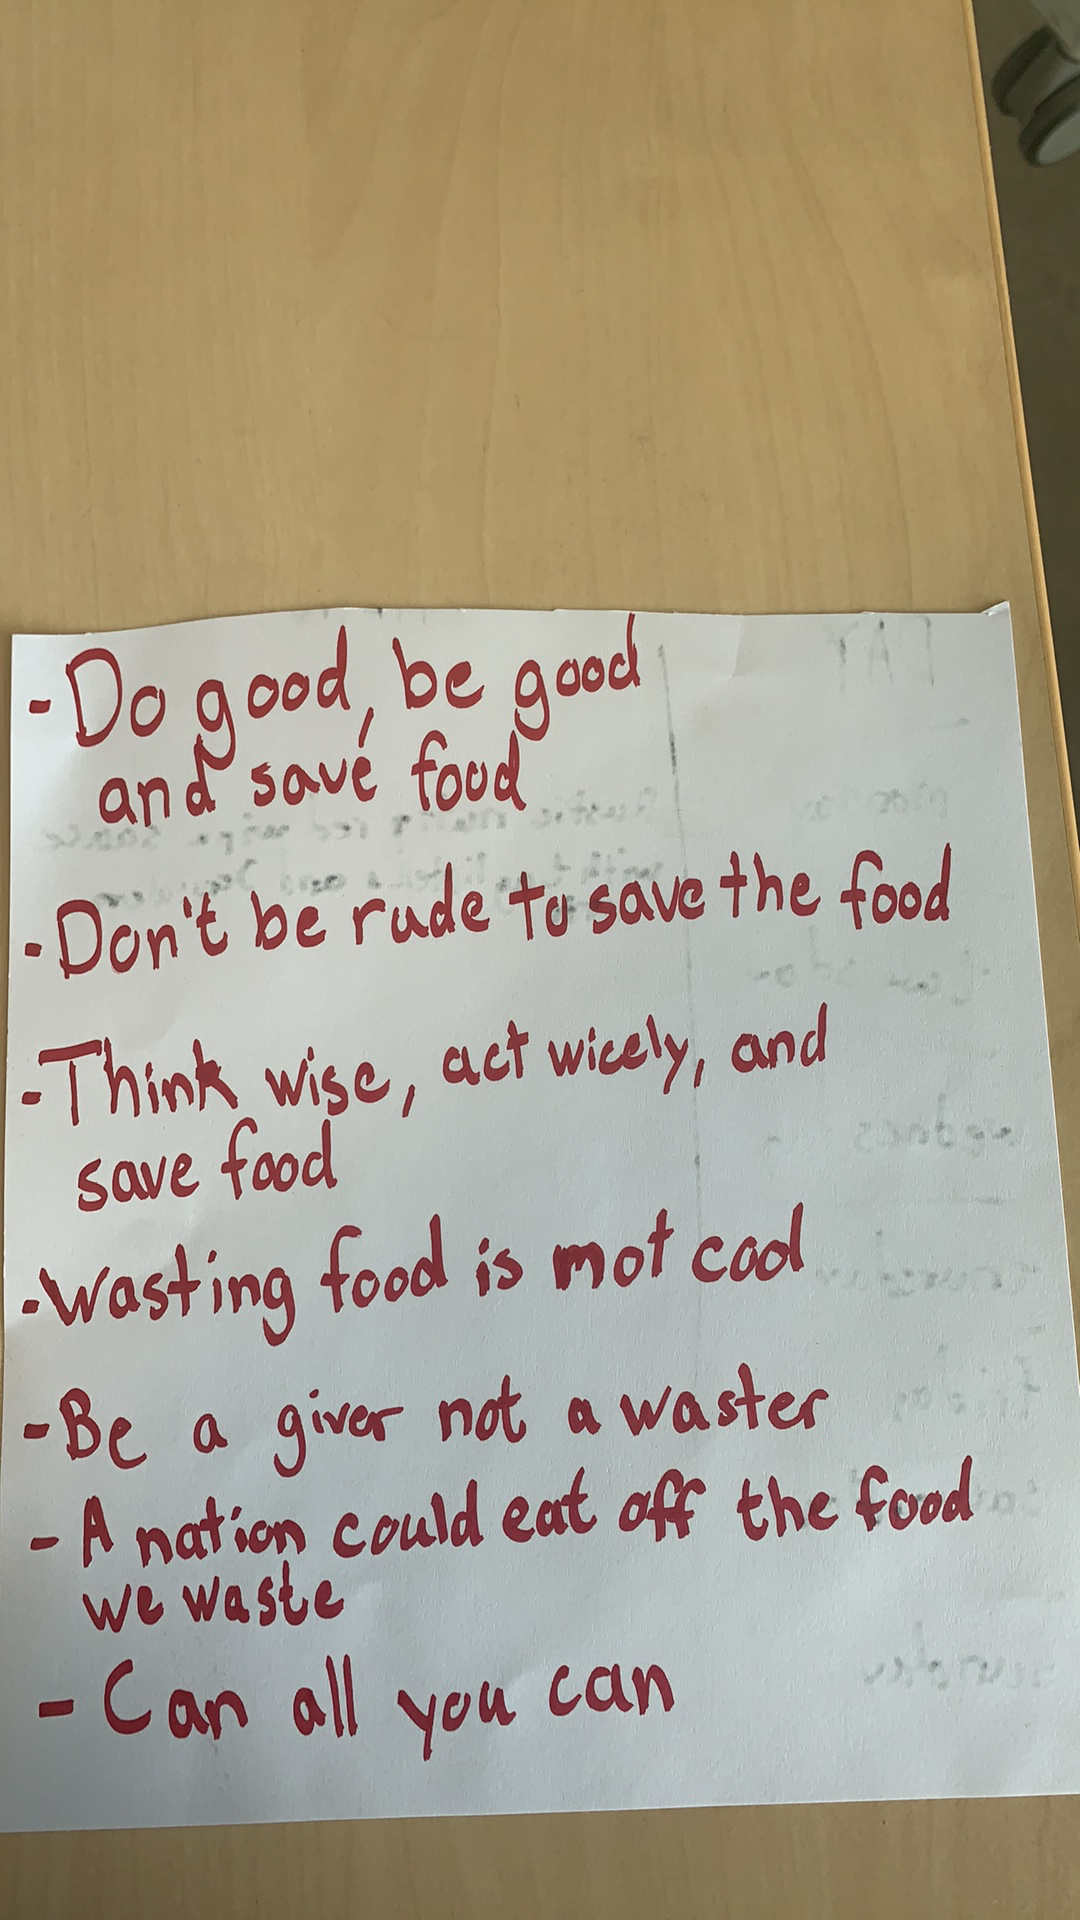 - Do good, be good
and save food
- Don't be rude to save the food
- Think wise, act wicely, and
save food
- Wasting food is mot cool
- Be a giver not a waster
- A nation could eat off the food
we waste
- Can all you can